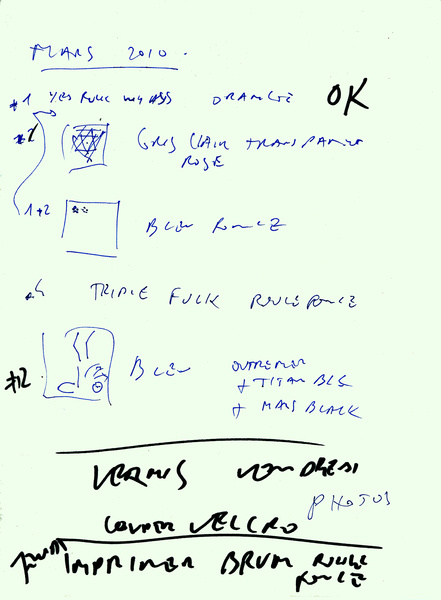 MARS 2010.
#1 YES FUCK MY ASS ORANGE OK
GRIS CLAIR TRANSPARENT
ROSE
1+2 BLEU
TRIPLE FUCK ROUGE FONCE
#2 BLEU OUTREMER
+ TITAN
+ MARS BLACK
VERNIS VENDREDI
PHOTOS
VELCRO
IMPRIMER BRUN ROUGE
FONCE